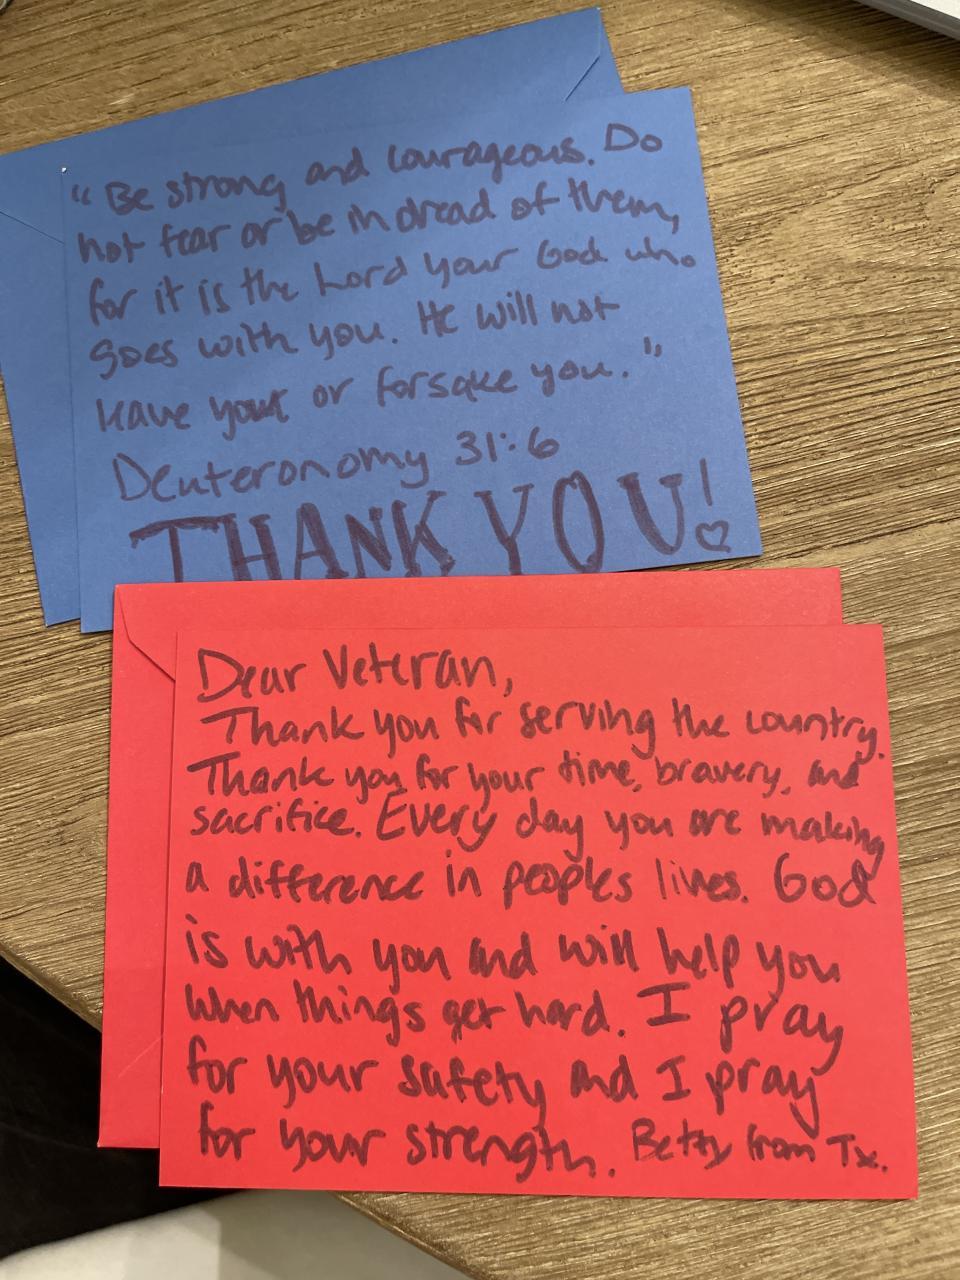 “Be strong and courageous. Do
not fear or be in dread of them,
for it is the Lord your God who
goes with you. He will not
leave you or forsake you.”
Deuteronomy 31:6
THANK YOU!
Dear Veteran,
Thank you for serving the country.
Thank you for your time, bravery, and
sacrifice. Every day you are making
a difference in peoples lives. God
is with you and will help you
when things get hard. I pray
for your safety and I pray
for your strength. Betty from Tx.